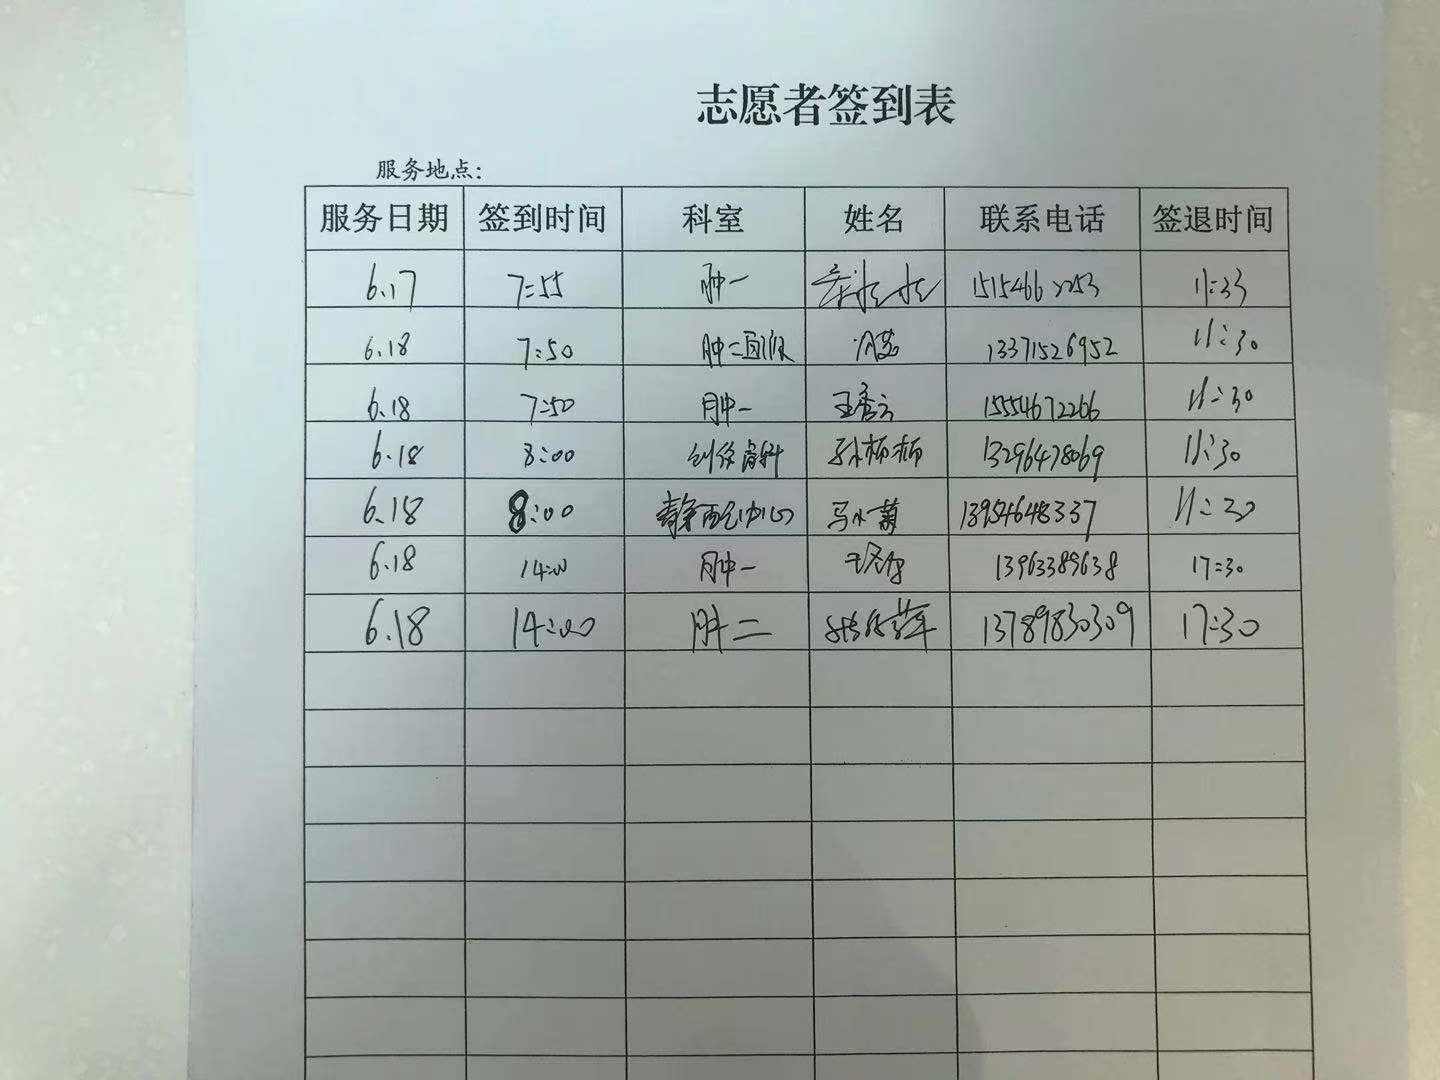 志愿者签到表
服务地点：
服务日期 签到时间 科室 姓名 联系电话 签退时间
6.17 7:55 肿一 11:33
6.18 7:50 肿二 13371526952 11:30
6.18 7:50 肿一 王秀云 15554672266 11:30
6.18 8:00 创伤骨科 孙柳柳 13296478069 11:30
6.18 8:00 静配中心 马小菊 13954648337 11:30
6.18 14:00 肿一 13963389638 17:30
6.18 14:00 肿二 13789830309 17:30